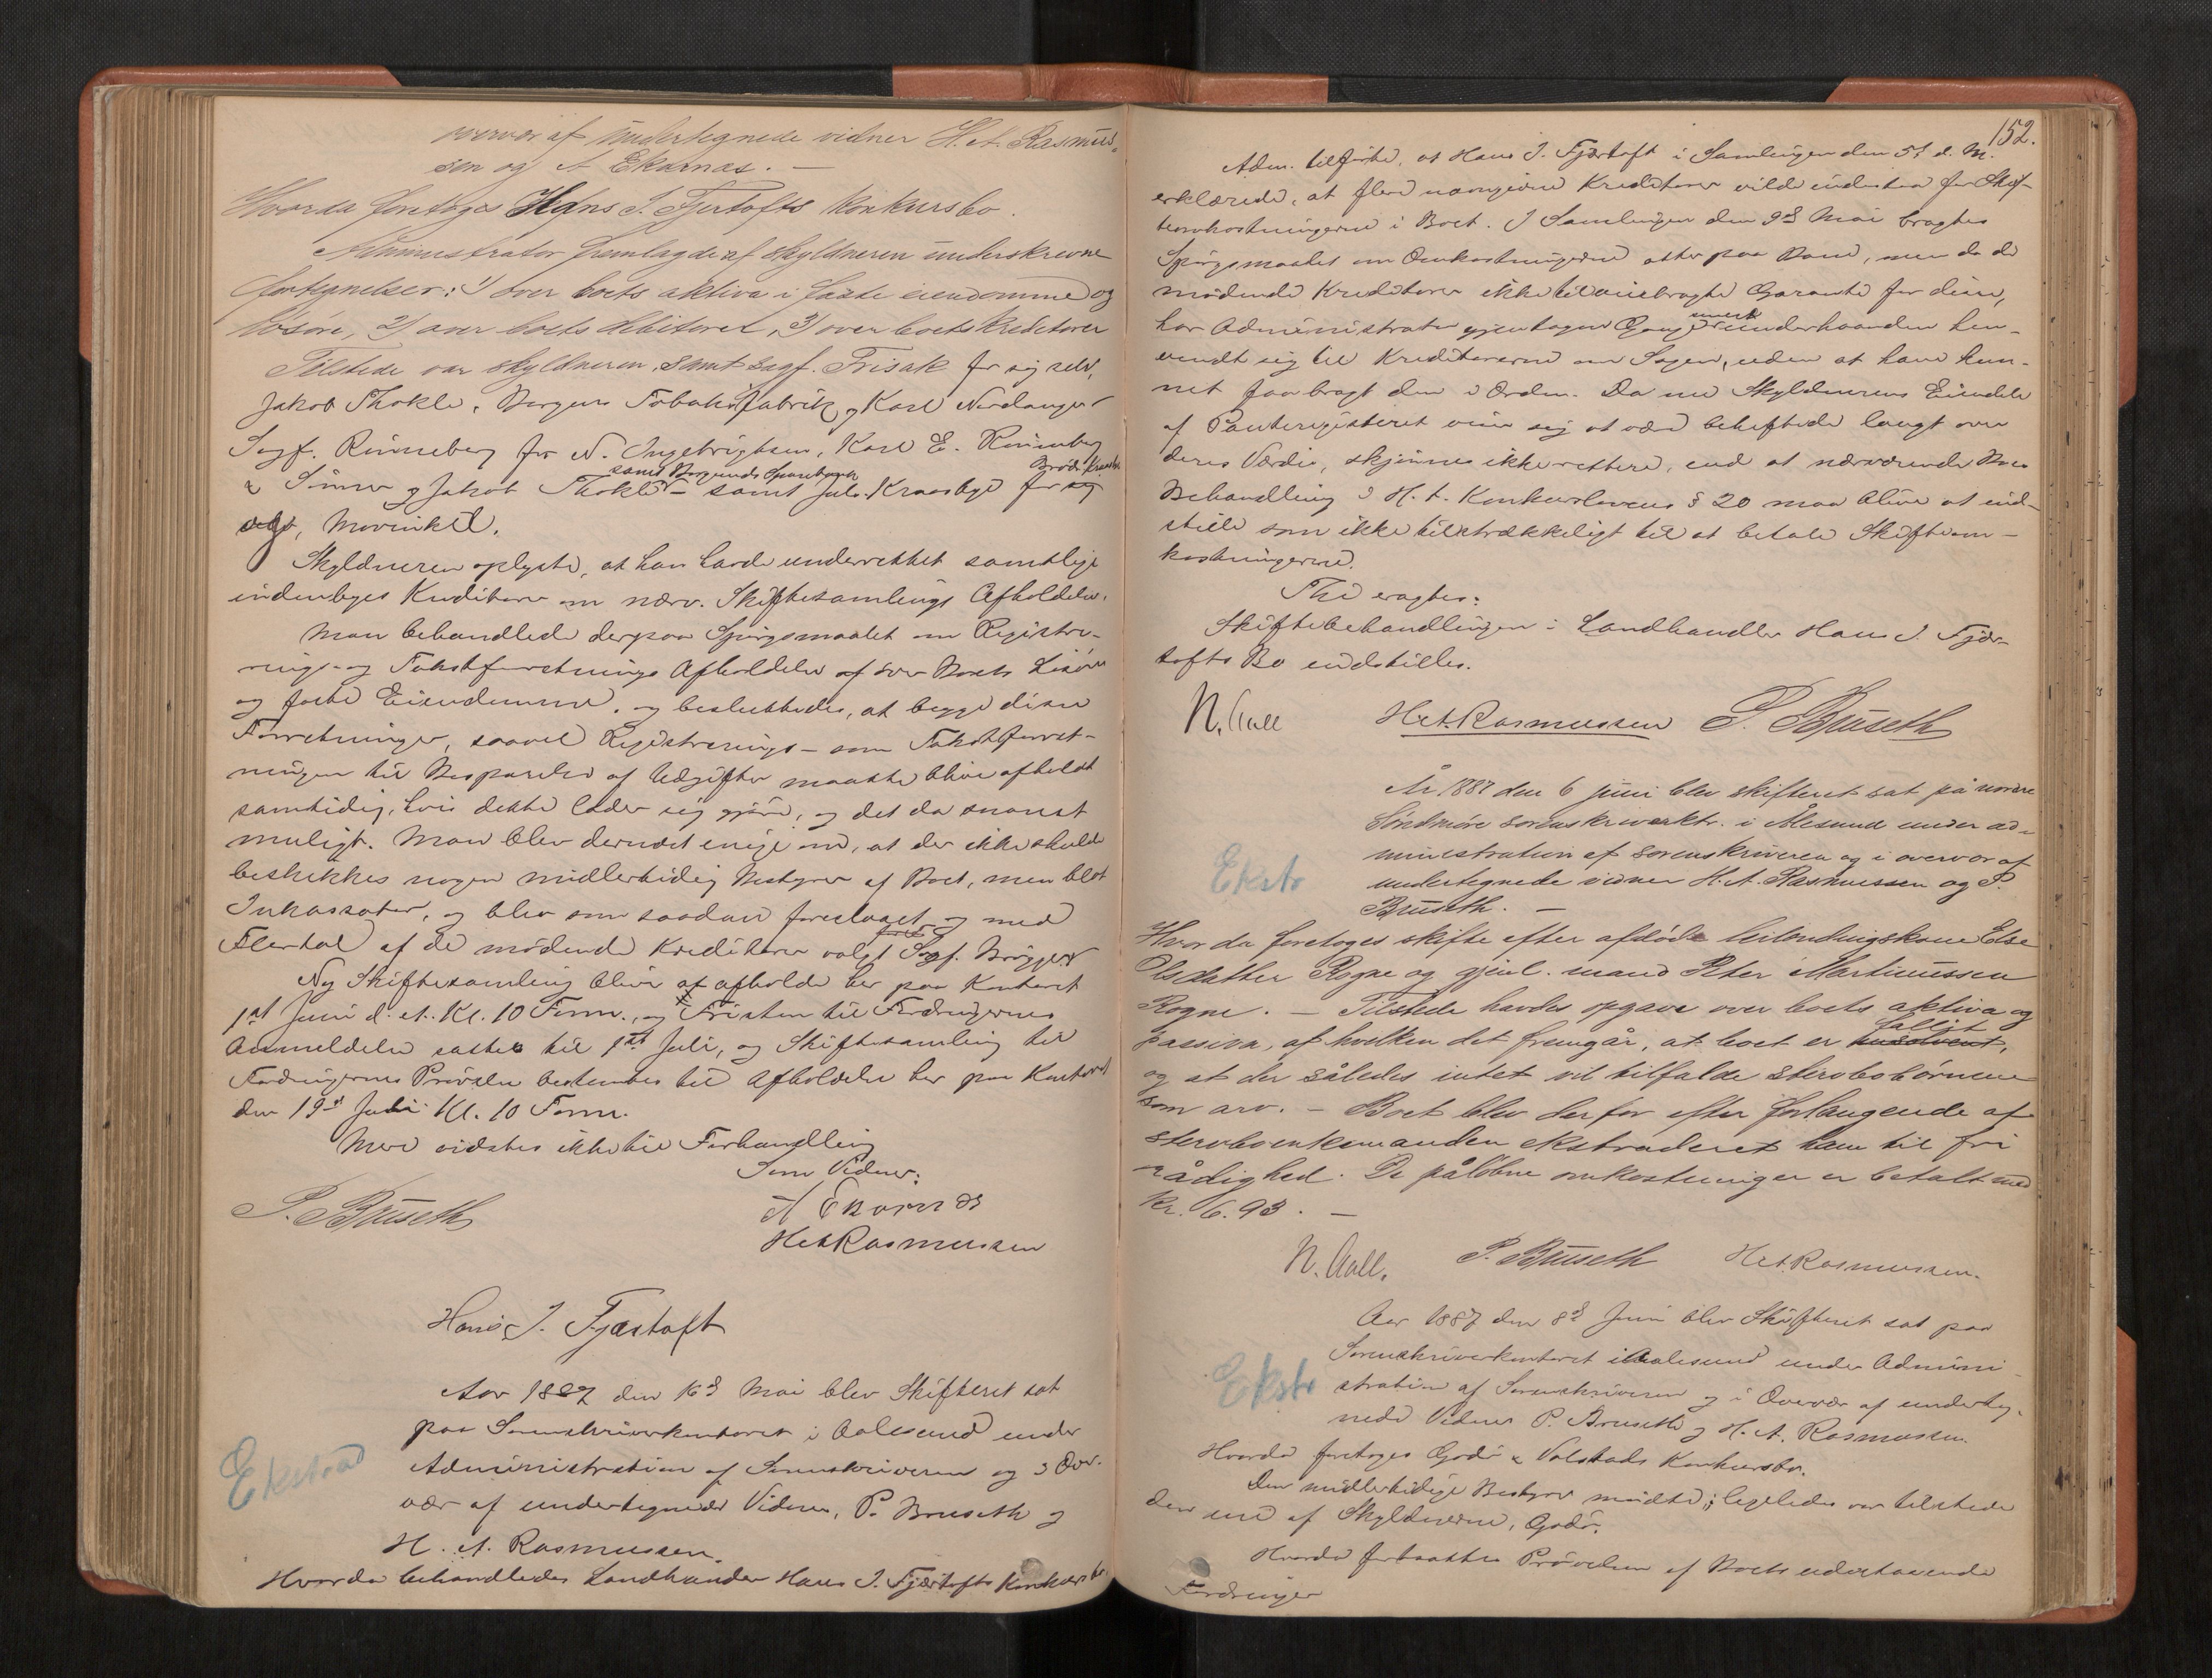 overvær af undertegnede vidner H. A. Rasmus-
sen og A Ekornæs. —
Hvorda foretoges Hans J. Fjertofts konkursbo.
Administrator fremlagde af skyldneren underskrevne
fortegnelser: 1) over boets aktiva i faste eiendomme og
løsøre, 2) over boets debitorer, 3) over boets kreditorer
Tilstede var skyldneren, samt sagf. Frisak for sig selv,
Jakob Thokle, Bergens Tobaksfabrik og Karl Nordanger
Sagf. Rønneberg for N. Ingebrigtsen, Karl E. Rønneberg
samt Borgunds Sparebank Brødr. Kraasbye
& Sønner og Jakob Thokle – samt Juls. Kraasbye for sig
selv, Movinkel.
Skyldneren oplyste, at han havde underrettet samtlige
indenbyes Kreditorer om nærv. Skiftesamlings Afholdelse.
Man behandlede derpaa Spørgsmaalet om Registre-
rings- og Takstforretnings Afholdelse af over Boets Løsøre
og faste Eiendomme, og besluttedes, at begge disse
Forretninger, saavel Registrerings- som Takstforret-
ningen til Besparelse af Udgifter maatte blive afholdt
samtidig, hvis dette lader sig gjøre, og det da snarest
muligt. Man blev dernæst enige om, at der ikke skulde
beskikkes nogen midlertidig Bestyrer af Boet, men blot
Inkassator, og blev som saadan foreslaaet og med
Flertal af de mødende Kreditorer valgt Sagf. Brøgger
Ny Skiftesamling bliver at afholde her paa Kontoret
1st Juni d. A. Kl. 10 Form., og Fristen til Fordringernes
Anmeldelse sattes til 1st Juli, og Skiftesamling til
Fordringernes Prøvelse bestemtes til Afholdelse her paa Kontoret
den 19d Juli Kl. 10 Form.
Mere vidstes ikke til Forhandling
Som Vidner:
P. Bruseth A Ekornæs
H A Rasmussen
Hans J. Fjærtoft
Aar 1887 den 16d Mai blev Skifteret sat
paa Sorenskriverkontoret i Aalesund under
Administration af Sorenskriveren og i Over-
vær af undertegnede Vidner, P. Bruseth og
H. A. Rasmussen.
Ekstrad
Hvorda behandledes Landhandler Hans J. Fjærtofts Konkursbo.
152.
Adm. tilførte, at Hans J. Fjærtoft i Samlingen den 5t d. M.
erklærede, at flere navngivne Kreditorer vilde indestaa for Skif-
teomkostningerne i Boet. I Samlingen den 9d Mai bragtes
Spørgsmaalet om Omkostningerne atter paa Bane, men da de
mødende Kreditorer ikke tilveiebragte Garanti for disse,
har Administrator gjentagne Gange underhaanden hen-
vendt sig til Kreditorerne om Sagen, uden at have kun-
net faa bragt den i Orden. Da nu Skyldnerens Eiendele
af Panteregisteret viser sig at være beheftede langt over
deres Værdi, skjønnes ikke rettere, end at nærværende Boes
Behandling i H. t. Konkurslovens § 20 maa blive at ind-
stille som ikke tilstrækkeligt til at betale Skifteom-
kostningerne.
Thi eragtes:
Skiftebehandlingen i Landhandler Hans J. Fjær-
tofts Bo indstilles.
N. Aall H A Rasmussen P. Bruseth
År 1887 den 6 juni blev skifteret sat på nordre
Søndmøre sorenskriverktr. i Ålesund under ad-
ministration af sorenskriveren og i overvær af
undertegnede vidner H. A. Rasmussen og P.
Bruseth. —
Ekstr
Hvor da foretoges skifte efter afdøde leilendingskone Else
Olsdatter Rogne og gjenl. mand Peter Martinussen
Rogne. — Tilstede havdes opgave over boets aktiva og
fallit
passiva, af hvilken det fremgår, at boet er insolvent,
og at der således intet vil tilfalde stervbobørnene
som arv. — Boet blev derfor efter forlangende af
stervboenkemanden ekstraderet ham til fri
rådighed. De påløbne omkostninger er betalt med
kr. 6.93. —
N. Aall. P. Bruseth H A Rasmussen.
Aar 1887 den 8d Juni blev Skifteret sat paa
Sorenskriverkontoret i Aalesund under Admini-
stration af Sorenskriveren og i Overvær af underteg-
nede Vidner P. Bruseth og H. A. Rasmussen.
Ekstr
Hvorda foretoges Godø & Valstads Konkursbo.
Den midlertidige Bestyrer mødte; ligeledes var tilstede
den ene af Skyldnerne, Godø.
Hvorda fortsattes Prøvelsen af Boets udestaaende
Fordringer